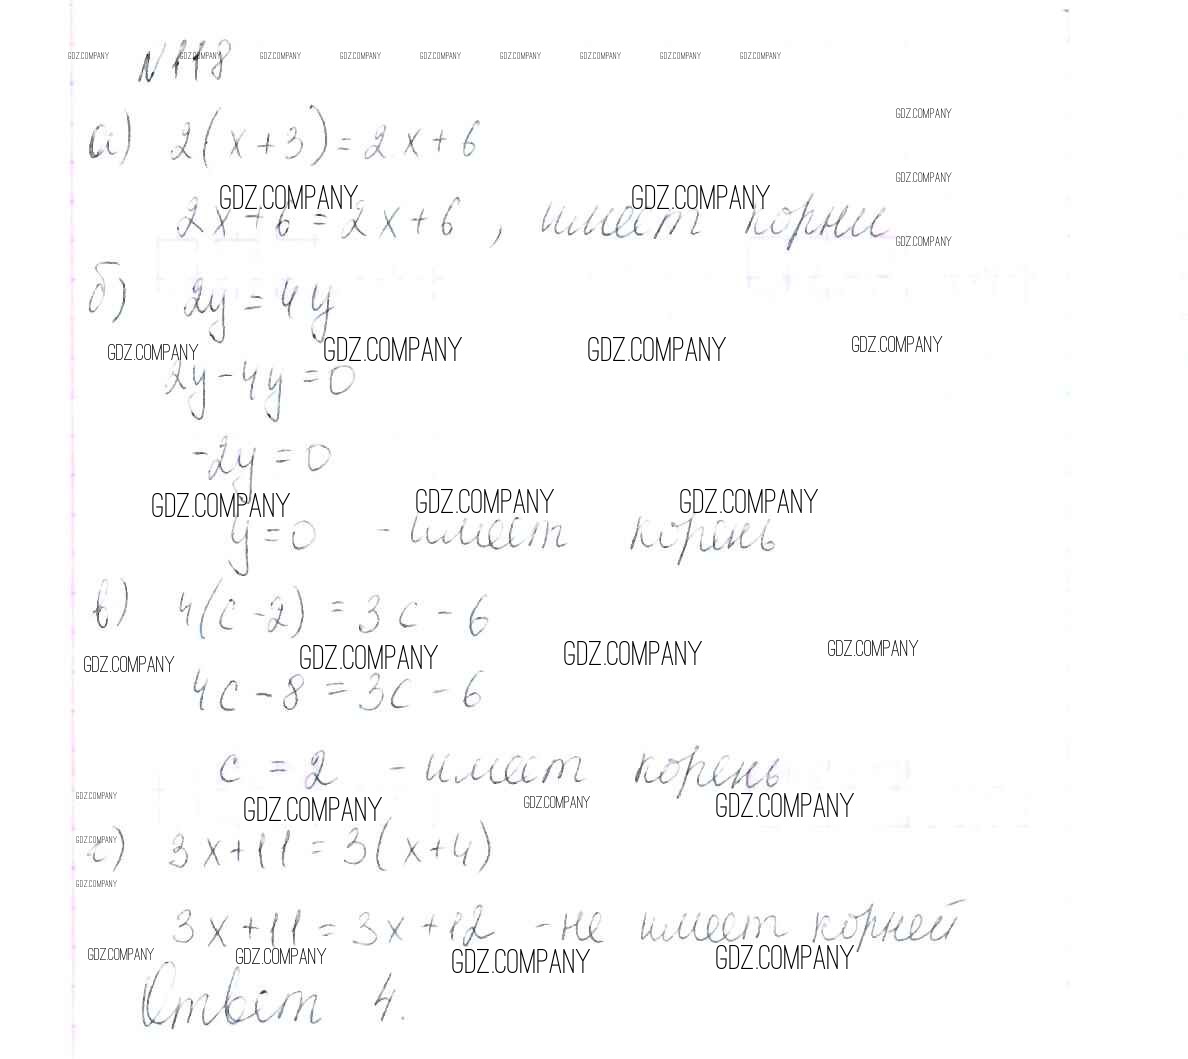 GDZ.COMPANY GDZ.COMPANY GDZ.COMPANY GDZ.COMPANY GDZ.COMPANY GDZ.COMPANY GDZ.COMPANY GDZ.COMPANY GDZ.COMPANY
N118
GDZ.COMPANY
а) 2(x+3)=2x+6
GDZ.COMPANY
GDZ.COMPANY GDZ.COMPANY
2x+6=2x+6, имеет корни
GDZ.COMPANY
б) 2y=4y
GDZ.COMPANY GDZ.COMPANY GDZ.COMPANY GDZ.COMPANY
2y-4y=0
-2y=0
GDZ.COMPANY GDZ.COMPANY GDZ.COMPANY
y=0 - имеет корень
в) 4(c-2)=3c-6
GDZ.COMPANY GDZ.COMPANY GDZ.COMPANY GDZ.COMPANY
4c-8=3c-6
c=2 - имеет корень
GDZ.COMPANY GDZ.COMPANY GDZ.COMPANY GDZ.COMPANY
GDZ.COMPANY
г) 3x+11=3(x+4)
GDZ.COMPANY
3x+11=3x+12 - не имеет корней
GDZ.COMPANY GDZ.COMPANY GDZ.COMPANY GDZ.COMPANY
Ответ 4.